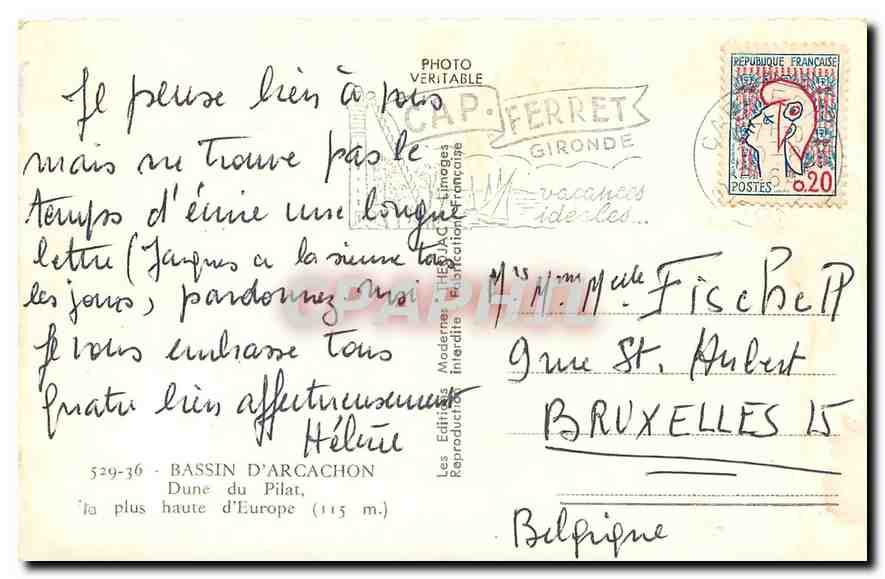 Je pense bien à vous
mais ne trouve pas le
temps d'écrire une longue
lettre (Jacques a la sienne tous
les jours, pardonnez-moi.
Je vous embrasse tous
quatre bien affectueusement
Hélène
529-36 - BASSIN D'ARCACHON
Dune du Pilat,
la plus haute d'Europe (115 m.)
PHOTO
VERITABLE
Les Editions Modernes "THEOJAC" Limoges
Reproduction interdite Fabrication Française
CAP-FERRET
GIRONDE
vacances
idéales...
REPUBLIQUE FRANÇAISE
POSTES 0.20
CAPHIL
Mrs Mme Melle Fischell
9 rue St. Hubert
BRUXELLES 15
Belgique